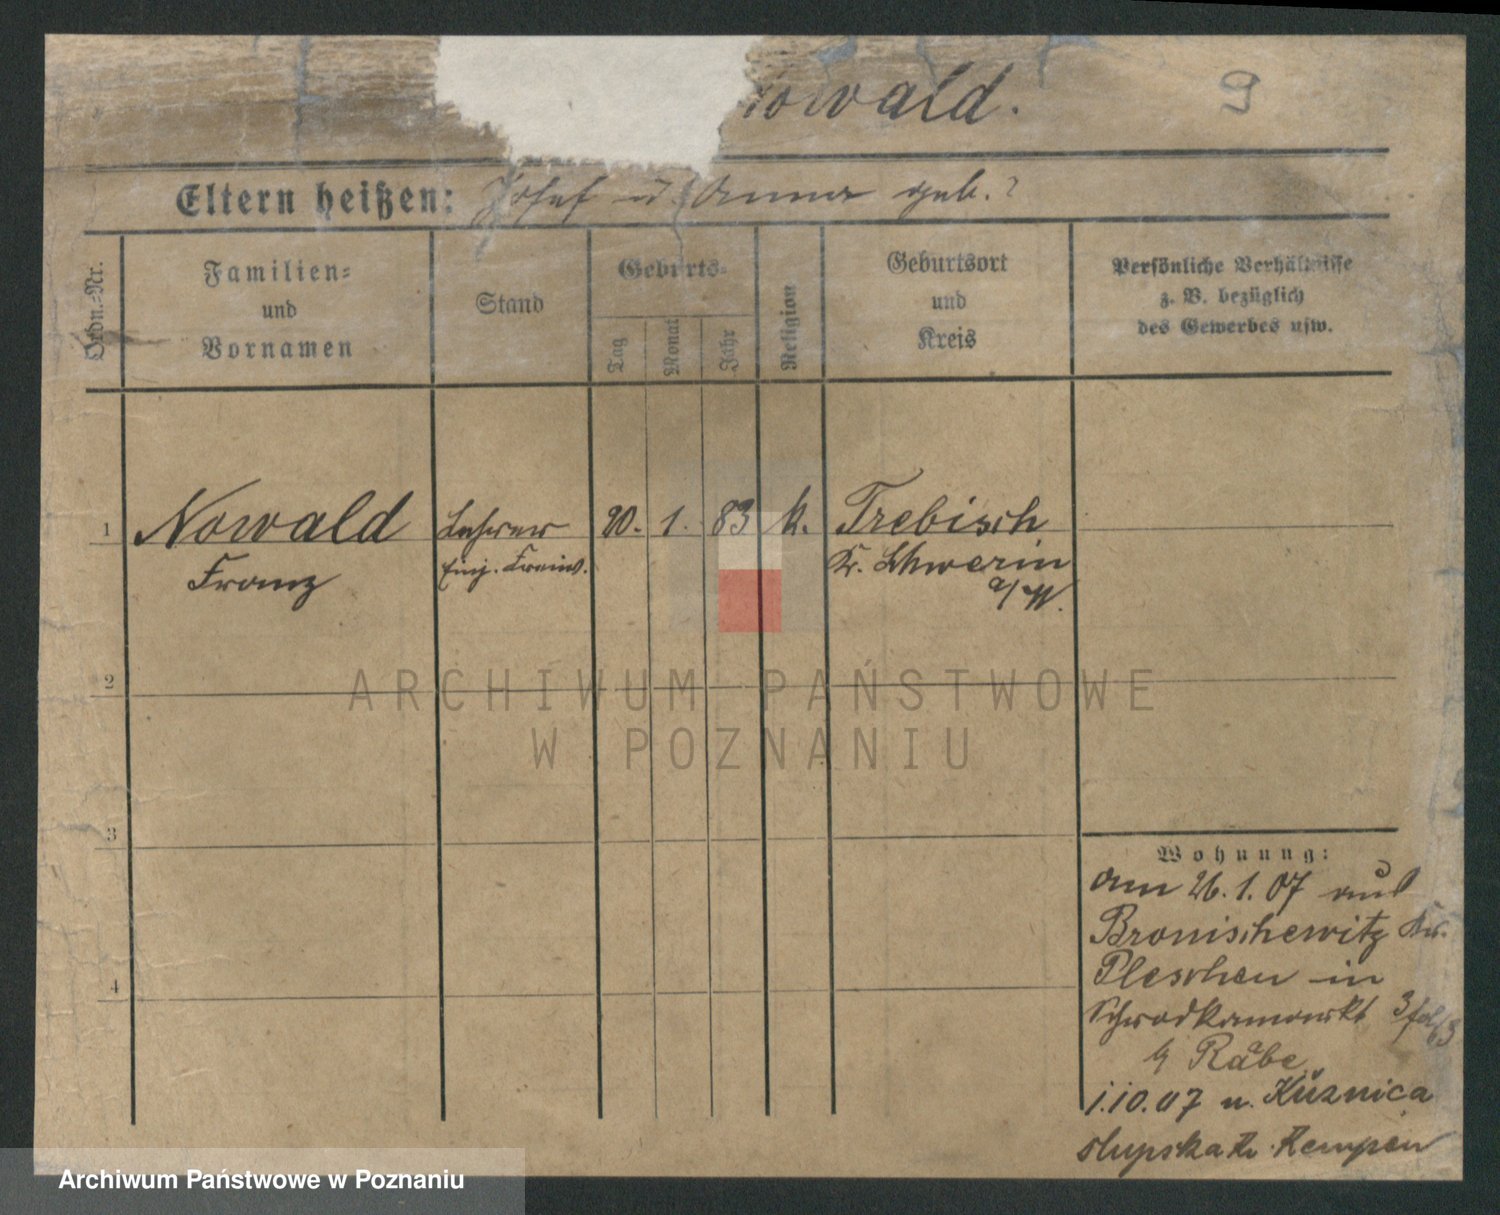 owald. 9
Eltern heißen: Josef u. Anna geb. ?
Ordn.=Nr.
Familien=
und
Vornamen
Stand
Geburts=
Tag
Monat
Jahr
Religion
Geburtsort
und
Kreis
Persönliche Verhältnisse
z. B. bezüglich
des Gewerbes usw.
1 Nowald Lehrer 20. 1. 83 k. Trebisch
Franz Einj. Freiw. Kr. Schwerin
a/W.
2
3
4
Wohnung:
am 26.1.07 aus
Bronischewitz Kr.
Pleschen in
3
b/ Räbe
1.10.07 n. Kuznica
slupska Kr. Kempen
ARCHIWUM PAŃSTWOWE
W POZNANIU
Archiwum Państwowe w Poznaniu